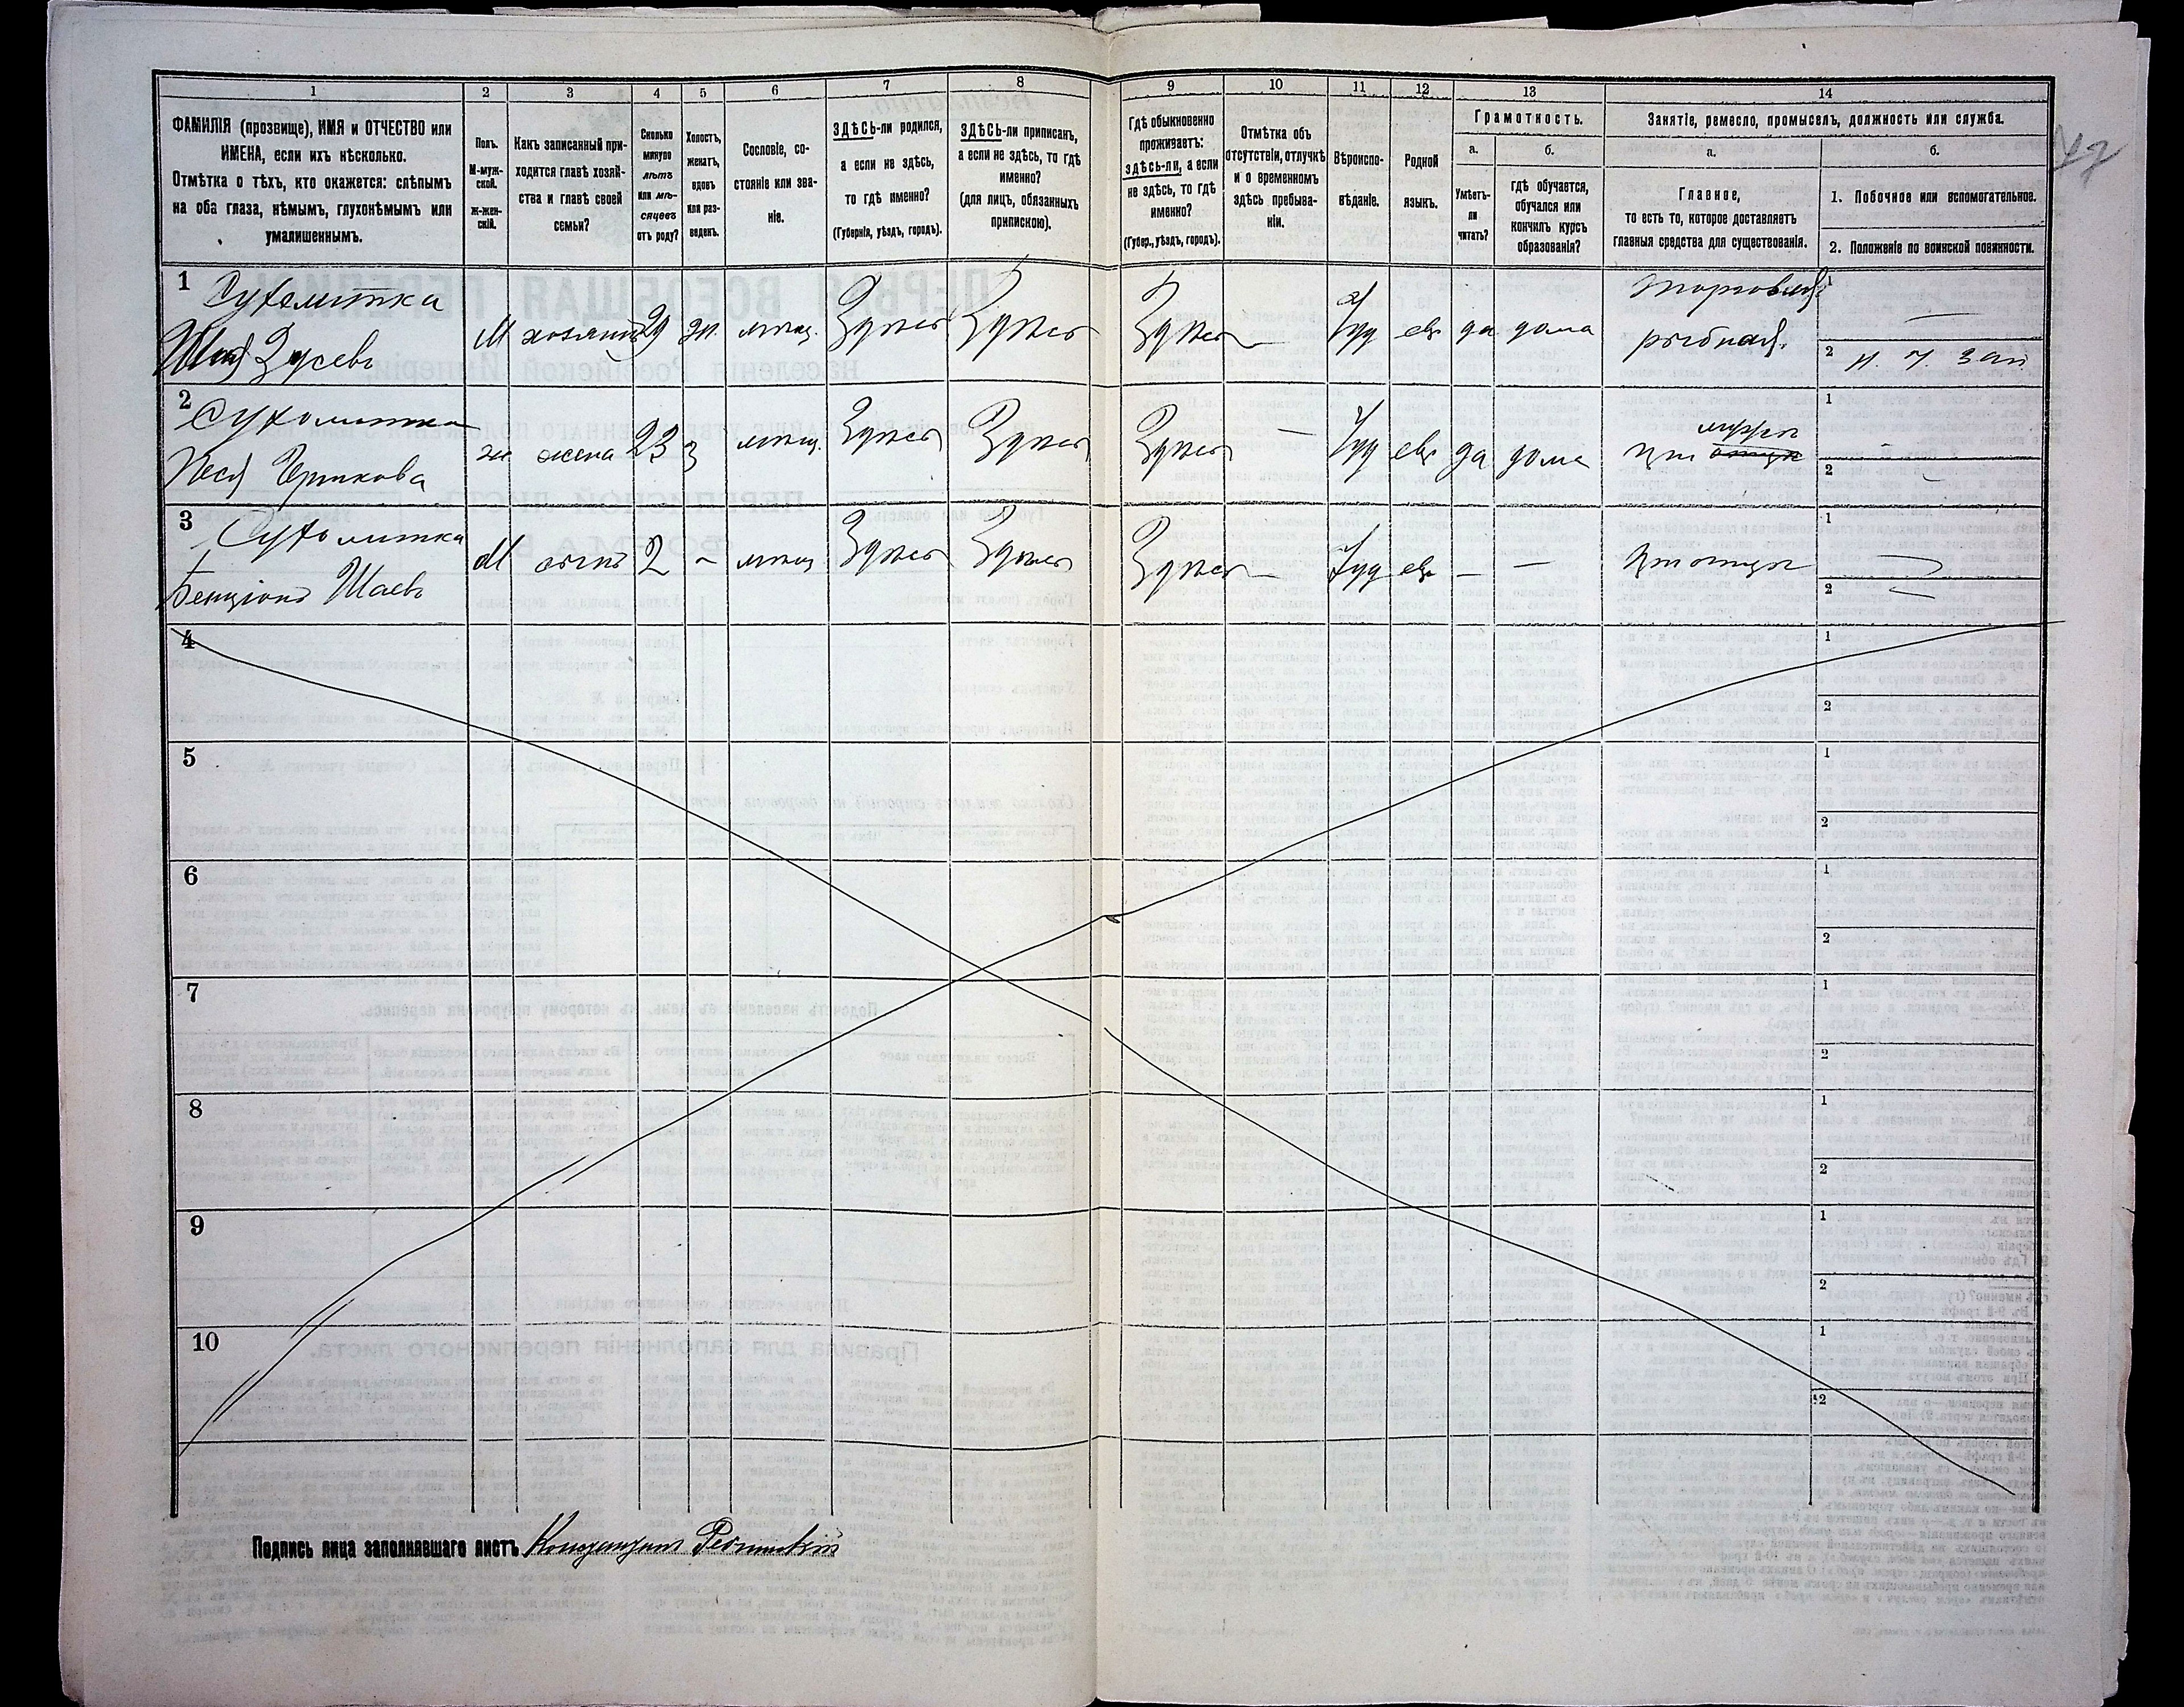 1 2 3 4 5 6 7 8 9 10 11 12 13 14
ФАМИЛІЯ (прозвище), ИМЯ и ОТЧЕСТВО или
ИМЕНА, если ихъ нѣсколько.
Отмѣтка о тѣхъ, кто окажется: слѣпымъ
на оба глаза, нѣмымъ, глухонѣмымъ или
умалишеннымъ.
Полъ.
М-муж-
ской.
ж-жен-
скій.
Какъ записанный при-
ходится главѣ хозяй-
ства и главѣ своей
семьи?
Сколько
минуло
лѣтъ
или мѣ-
сяцевъ
отъ роду?
Холостъ,
женатъ,
вдовъ
или раз-
веденъ.
Сословіе, со-
стояніе или зва-
ніе.
ЗДѢСЬ-ли родился,
а если не здѣсь,
то гдѣ именно?
(Губернія, уѣздъ, городъ).
ЗДѢСЬ-ли приписанъ,
а если не здѣсь, то гдѣ
именно?
(для лицъ, обязанныхъ
припискою).
Гдѣ обыкновенно
проживаетъ:
здѣсь-ли, а если
не здѣсь, то гдѣ
именно?
(Губер., уѣздъ, городъ).
Отмѣтка объ
отсутствіи, отлучкѣ
и о временномъ
здѣсь пребыва-
ніи.
Вѣроиспо-
вѣданіе.
Родной
языкъ.
Грамотность.
а.
Умѣетъ-
ли
читать?
б.
гдѣ обучается,
обучался или
кончилъ курсъ
образованія?
Занятіе, ремесло, промыселъ, должность или служба.
а.
Главное,
то есть то, которое доставляетъ
главныя средства для существованія.
б.
1. Побочное или вспомогательное.
2. Положеніе по воинской повинности.
1 Сухомитка
Шая Зусевъ
М хозяинъ 29 ж. мѣщ. Здѣсь Здѣсь Здѣсь — Іуд евр да дома
торговля
рыбная.
—
2
2 Сухомитка
Песя Берикова
ж. жена 23 з мѣщ. Здѣсь Здѣсь Здѣсь — Іуд евр да дома
при
1 -
2 -
3 Сухомитка
Бенціонъ Шаевъ
М сынъ 2 - мѣщ Здѣсь Здѣсь Здѣсь — Іуд евр — —
при отцѣ
1 —
2 —
4 1
2
5 1
2
6 1
2
7 1
2
8 1
2
9 1
2
10 1
2
Подпись лица заполнявшаго листъ